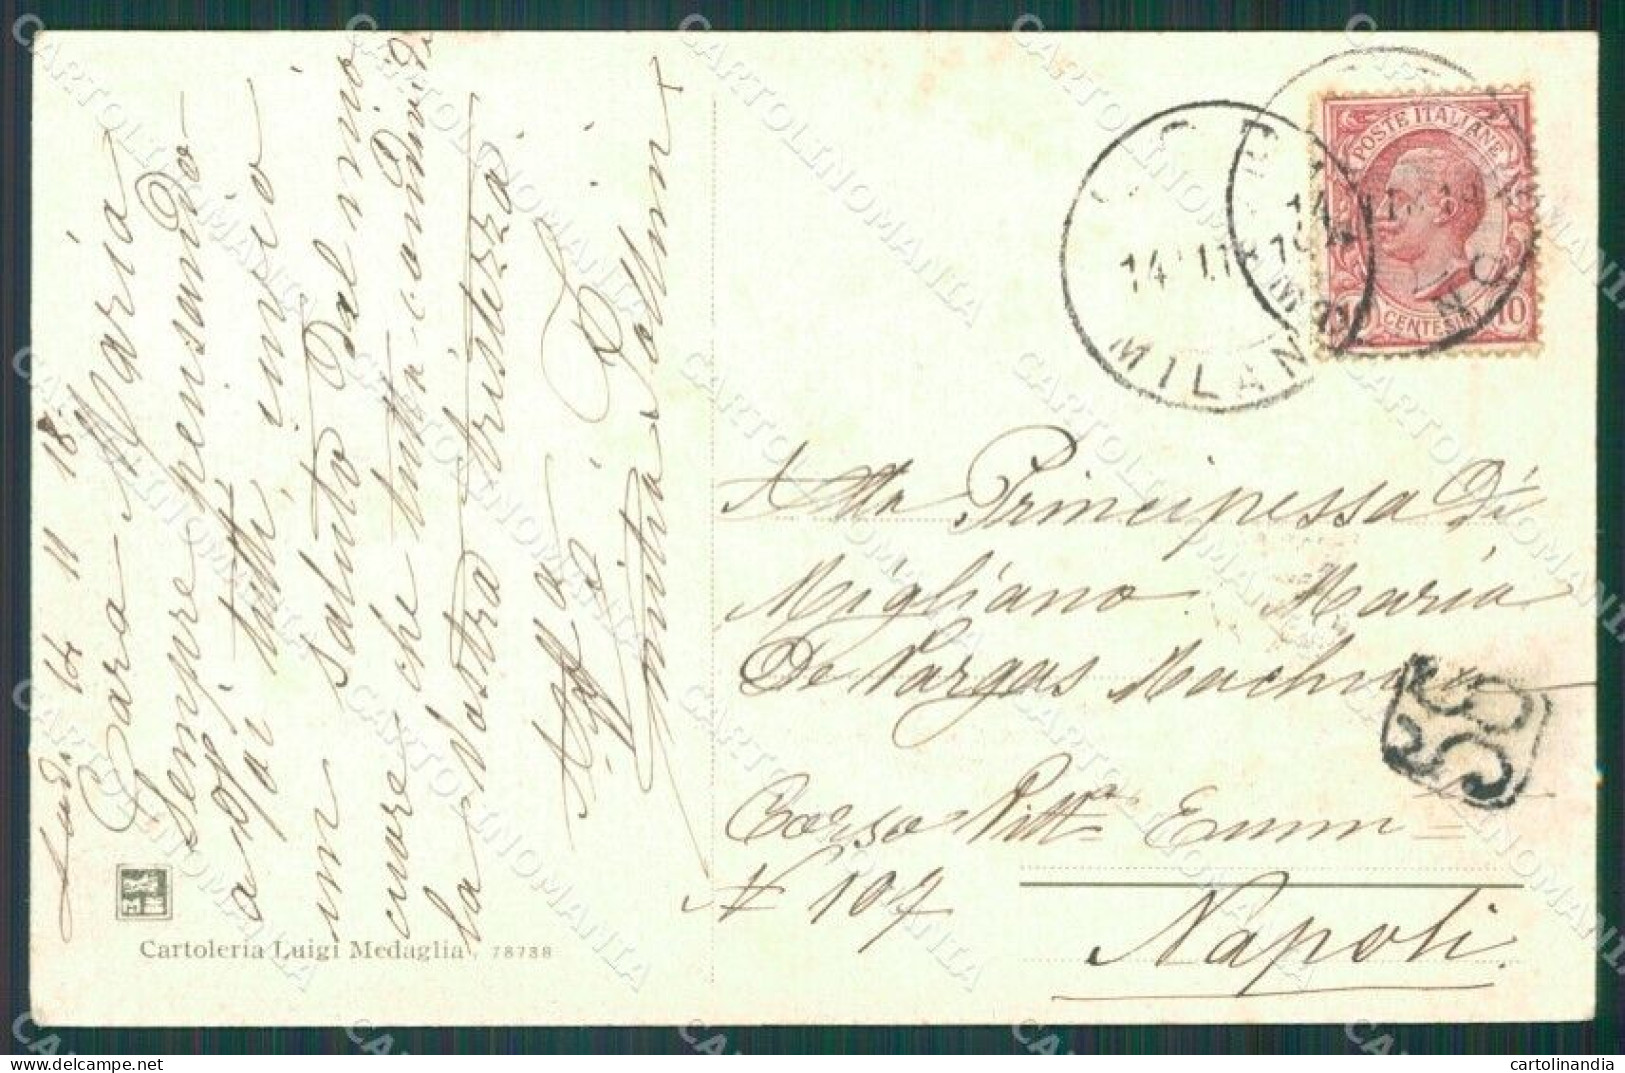 14 11 18
Cara Maria
Sempre pensando
a voi tutti, invio
un saluto dal mio
cuore che tutta condivide
la Vostra tristezza
Cartoleria Luigi Medaglia, 78738
POSTE ITALIANE
10 CENTESIMI 10
MILANO
Alla Principessa Di
Migliano Maria
De Vargas Machuca
Corso Vitt.a Emm=
N 107
Napoli.
56
cartolinandia
CARTOLINOMANIA